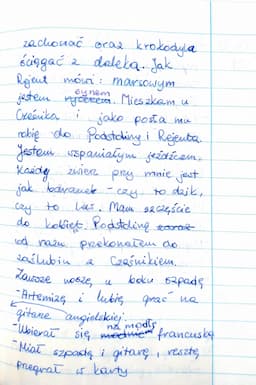 zachować oraz krokodyla
ściągać z daleka. Jak
Rejent mówi: marsowym
jestem synem. Mieszkam u
Cześnika i jako posła mu
robię do Podstoliny i Rejenta.
Jestem wspaniałym jeźdźcem.
Każdy zwierz przy mnie jest
jak baranek - czy to dzik,
czy to lew. Mam szczęście
do kobiet. Podstolinę
od razu przekonałem do
zaślubin z Cześnikiem.
Zawsze noszę u boku szpadę
-Artemizę i lubię grać na
gitarze angielskiej.
-Ubierał się na modłę francuską
-Miał szpadę i gitarę, resztę
przegrał w karty